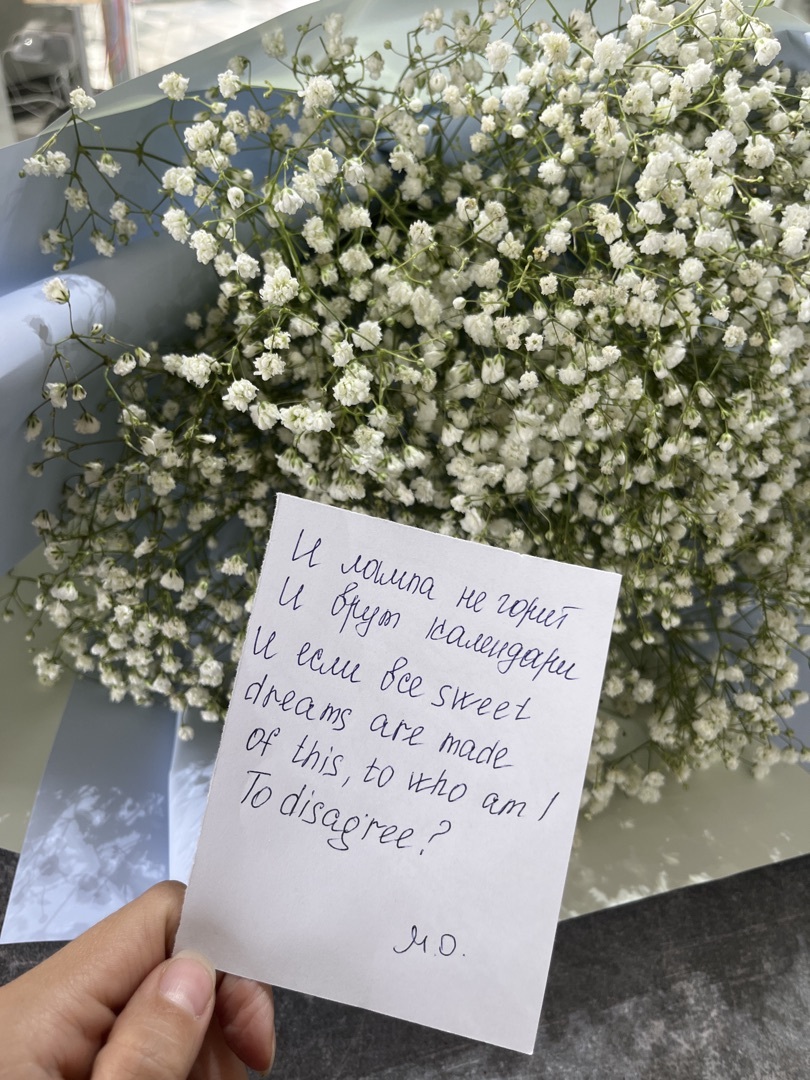 И лампа не горит
И врут календари
И если все sweet
dreams are made
of this, to who am I
To disagree?
М.О.